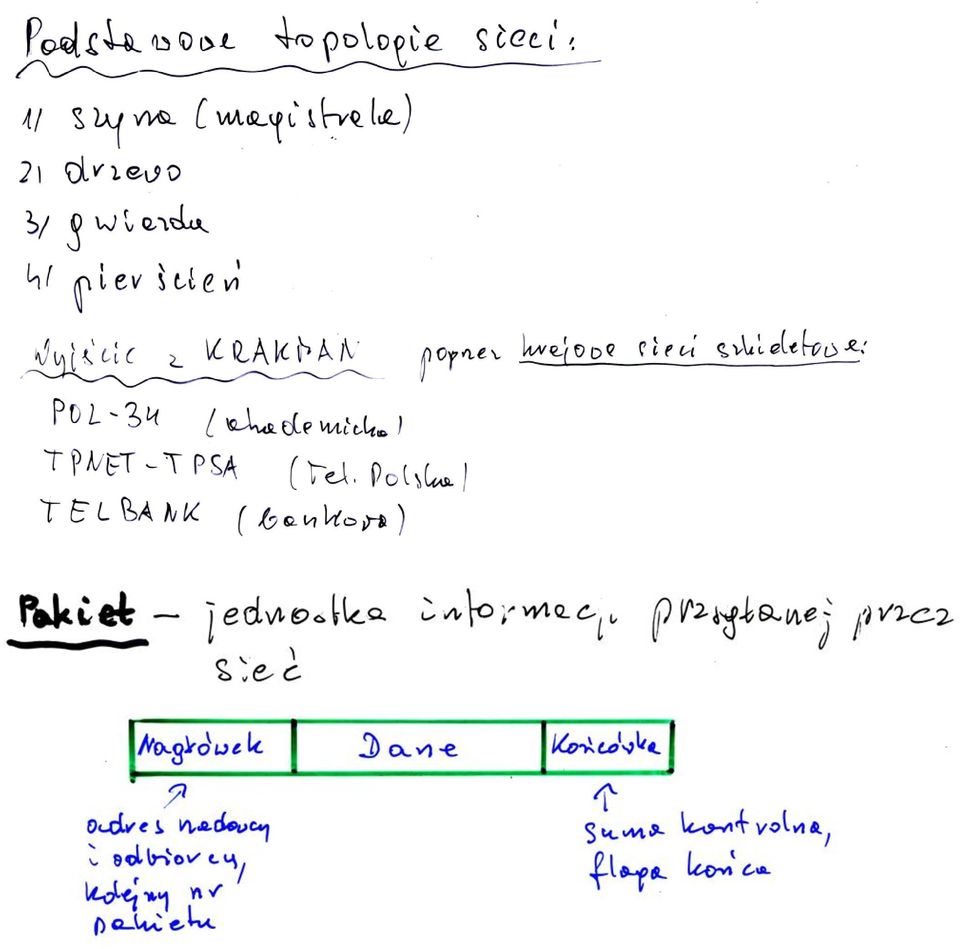 Podstawowe topologie sieci:
1/ szyna (magistrala)
2/ drzewo
3/ gwiazda
4/ pierścień
Wyjście z KRAKMAN poprzez krajowe sieci szkieletowe:
POL-34 (akademicka)
TPNET-TPSA (Tel. Polska)
TELBANK (bankowa)
Pakiet – jednostka informacji przesyłanej przez
sieć
Nagłówek Dane Końcówka
adres nadawcy
i odbiorcy,
kolejny nr
pakietu
suma kontrolna,
flaga końca